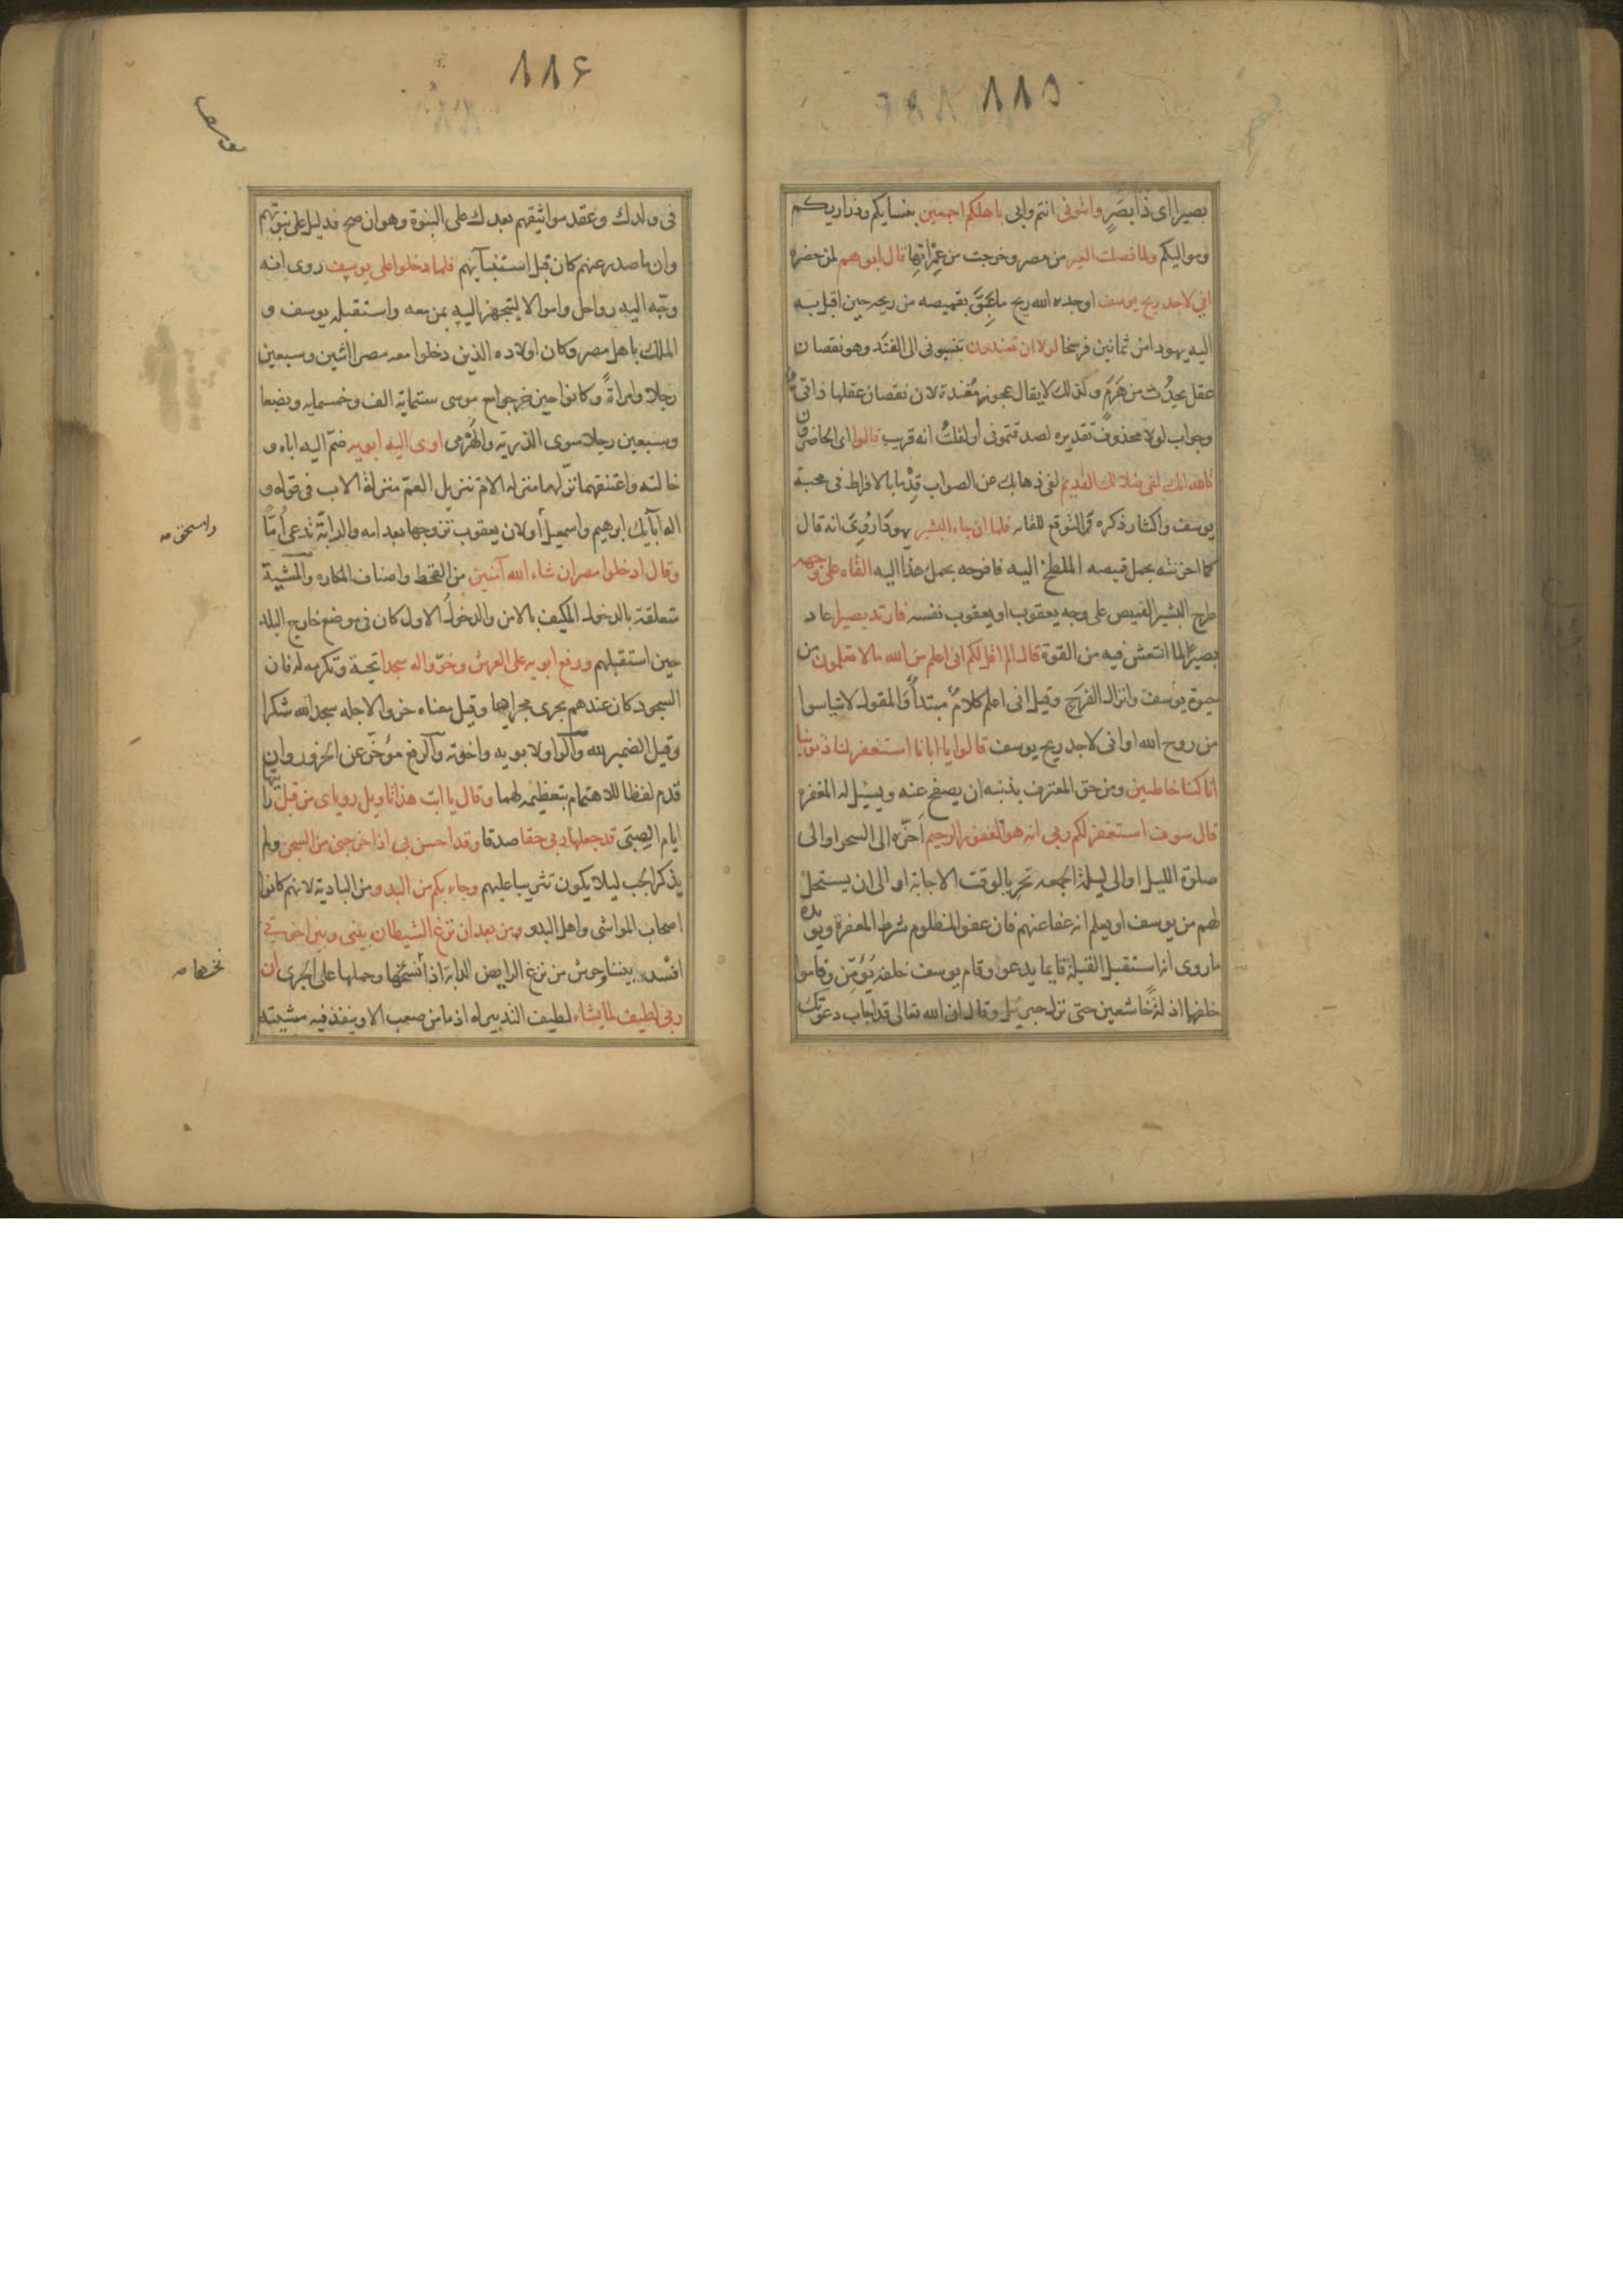 ١١٥
بصيرا اى ذا بصر واتونى انتم وابى باهلكم اجمعين بنسايكم وذراريكم
ومواليكم ولما فصلت العير من مصر وخرجت من عمرانها قال ابوهم لمن حضره
انى لاجد ريح يوسف اوجده الله ريح ما عبق بقميصه من ريحه حين اقبل به
اليه يهودا من ثمانين فرسخا لولا ان تفندون تنسبونى الى الفند وهو نقصان
عقل يحدث من هرم ولذلك لا يقال عجوز مفندة لان نقصان عقلها ذاتى
وجواب لولا محذوف تقديره لصدقتمونى او لقلت انه قريب قالوا اى الحاضرون
تالله انك لفى ضلالك القديم لفى ذهابك عن الصواب قدما بالافراط فى محبة
يوسف واكثار ذكره والتوقع للقائه فلما ان جاء البشير يهودا روى انه قال
كما احزنته بحمل قميصه الملطخ اليه فافرحه بحمل هذا اليه القاه على وجهه
طرح البشير القميص على وجه يعقوب او يعقوب نفسه فارتد بصيرا عاد
بصيرا لما انتعش فيه من القوة قال الم اقل لكم انى اعلم من الله ما لا تعلمون من
حيوة يوسف وانزال الفرج وقيل انى اعلم كلام مبتدأ والمقول لا تياسوا
من روح الله او انى لاجد ريح يوسف قالوا يا ابانا استغفر لنا ذنوبنا
انا كنا خاطئين ومن حق المعترف بذنبه ان يصفح عنه ويسئل له المغفرة
قال سوف استغفر لكم ربى انه هو الغفور الرحيم اخره الى السحر او الى
صلوة الليل او الى ليلة الجمعه تحريا لوقت الاجابة او الى ان يستحل
لهم من يوسف او يعلم انه عفا عنهم فان عفو المظلوم شرط المغفرة ويؤيده
ما روى انه استقبل القبلة قايما يدعو وقام يوسف خلفه يؤمن وقاموا
خلفهما اذلة خاشعين حتى نزل جبرئيل وقال ان الله تعالى قد اجاب دعوتك
١١۶
يوسف
فى ولدك وعقد مواثيقهم بعدك على النبوة وهو ان صح فدليل على نبوتهم
وان ما صدر عنهم كان قبل استنبآئهم فلما دخلوا على يوسف روى انه
وجه اليه رواحل واموالا ليتجهز اليه بمن معه واستقبله يوسف و
الملك باهل مصر وكان اولاده الذين دخلوا معه مصر اثنين وسبعين
رجلا وامراة وكانوا حين خرجوا مع موسى ستماية الف وخمسمايه وبضعا
وسبعين رجلا سوى الذرية والهرمى اوى اليه ابويه ضم اليه اباه و
خالته واعتنقهما نزلها منزلة الام تنزيل العم منزلة الاب فى قوله و
اله آبآيك ابرهيم واسمعيل او لان يعقوب تزوجها بعد امه والرابة تدعى اما
واسحق صح
وقال ادخلوا مصر ان شاء الله آمنين من القحط واصناف المكاره والمشية
متعلقة بالدخول المكيف بالامن والدخول الاول كان فى موضع خارج البلد
حين استقبلهم ورفع ابويه على العرش وخروا له سجدا تحية وتكرمه له فان
السجود كان عندهم يجرى مجراها وقيل معناه خروا لاجله سجدا لله شكرا
وقيل الضمير لله والواو لابويه واخوته والرفع مؤخر عن الخرور وان
قدم لفظا للاهتمام بتعظيمه لهما وقال يا ابت هذا تاويل روياى من قبل رايتها
ايام الصبى قد جعلها ربى حقا صدقا وقد احسن بى اذ اخرجنى من السجن ولم
يذكر الجب ليلا يكون تثريبا عليهم وجاء بكم من البدو من البادية لانهم كانوا
اصحاب المواشى واهل البدو من بعد ان نزغ الشيطان بينى وبين اخوتى
افسد بيننا وحرش من نزغ الرايض الدابة اذا نخسها وحملها على الجرى ان
نخسها صح
ربى لطيف لما يشاء لطيف التدبير له اذ ما من صعب الا وينفذ فيه مشيته